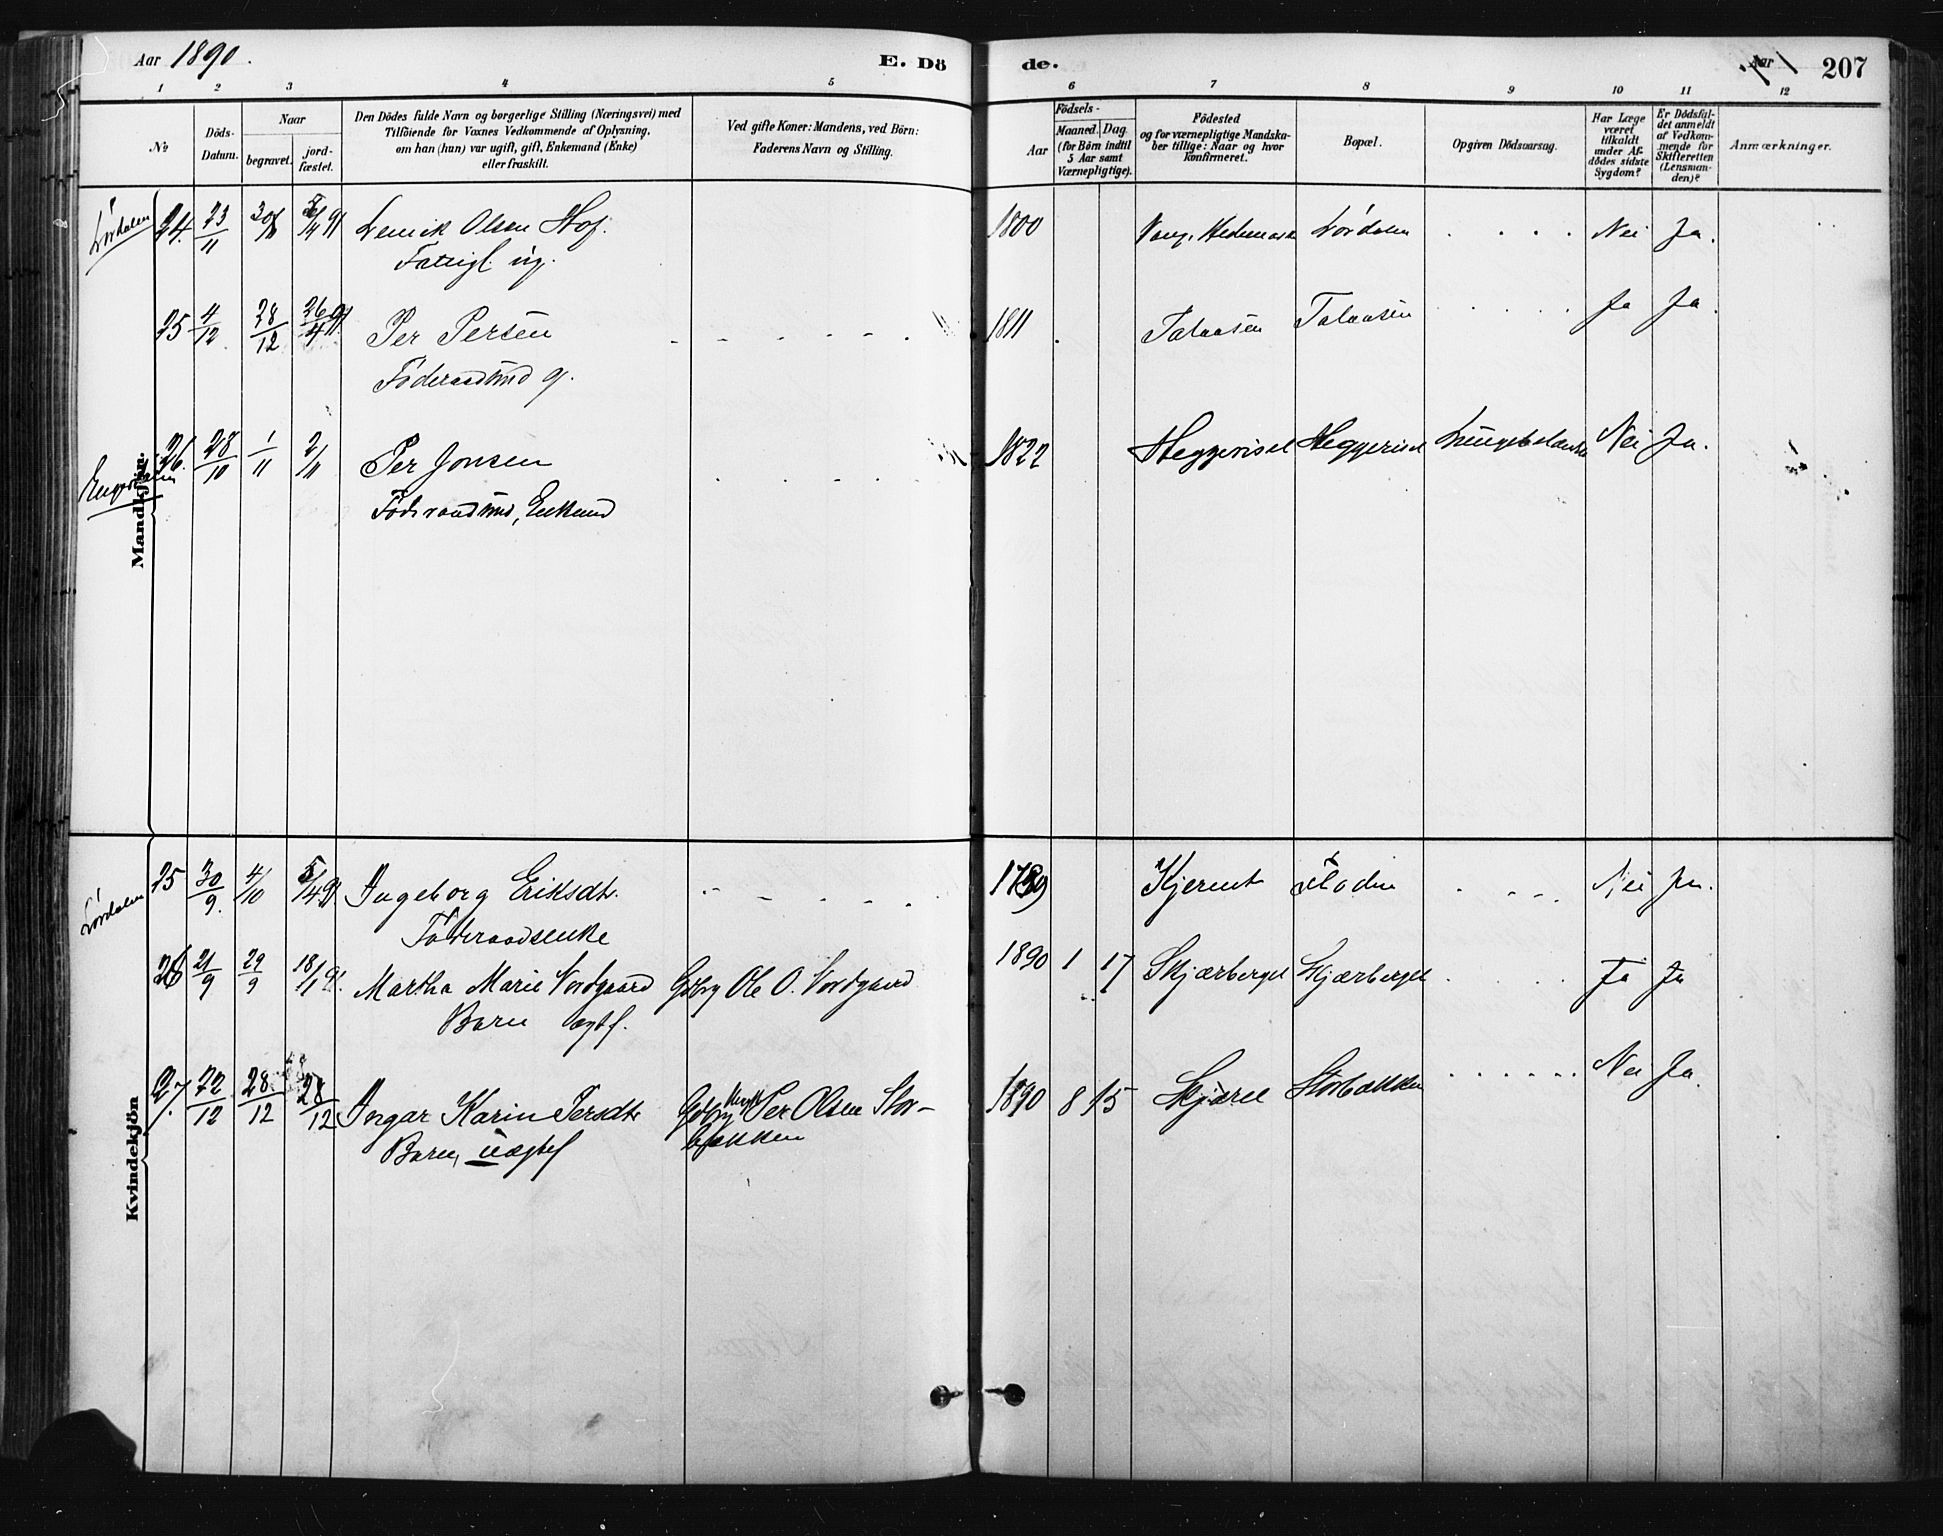 Aar 1890. E. Dö de. Aar 207
1 2 3 4 5 6 7 8 9 10 11 12
No Döds-Datum. Naar begravet. jord-fæstet.
Den Dödes fulde Navn og borgerlige Stilling (Næringsvei) med
Tilföiende for Voxnes Vedkommende af Oplysning,
om han (hun) var ugift, gift, Enkemand (Enke)
eller fraskilt.
Ved gifte Koner: Mandens, ved Börn:
Faderens Navn og Stilling.
Födsels-
Aar Maaned. Dag
(for Börn indtil
5 Aar samt
Værnepligtige).
Födested
og for værnepligtige Mandska-
ber tillige: Naar og hvor
konfirmeret.
Bopæl.
Opgiven Dödsaarsag.
Har Læge
været
tilkaldt
under Af-
dödes sidste
Sygdom?
Er Dödsfal-
det anmeldt
af Vedkom-
mende for
Skifteretten
(Lensman-
den)?
Anmærkninger.
Mandkjön.
Lørdalen 24. 23/11 30/11 5/4 91 Olsen Hof. 1800 Vang, Hedemarken Lørdalen . . . . Nei Ja.
Fattigl. ug.
25 4/12 28/12 26/4 91 Per Persen - - - - - . 1811 Talaasen Talaasen . . . . . Ja Ja.
Føderaadsmd g.
Engerdalen 26. 28/10 1/11 2/11 Per Jonsen . . - - - . 1822 Heggeriset Heggeriset Nei Ja.
Føderaadsmd, Enkemd
Kvindekjön
Lørdalen 25 30/9. 4/10 5/4 91 Ingeborg Eriksdtr. - - . . . . 1789 Floden . - - - . Nei Ja.
Føderaadsenke
26 21/9 29/9 18/1 91. Martha Marie Nordgaard Gdbrg Ole O. Nordgaard 1890 1 17 Skjærberget Skjærberget . . . . Ja Ja
Barn ægtef.
27. 22/12 28/12 28/12 Ingar Karin Persdtr Gdbrg Per Olsen Stor- 1890 8 15 Storbækken . . . . . . Nei Ja.
Barn, uægtef bækken